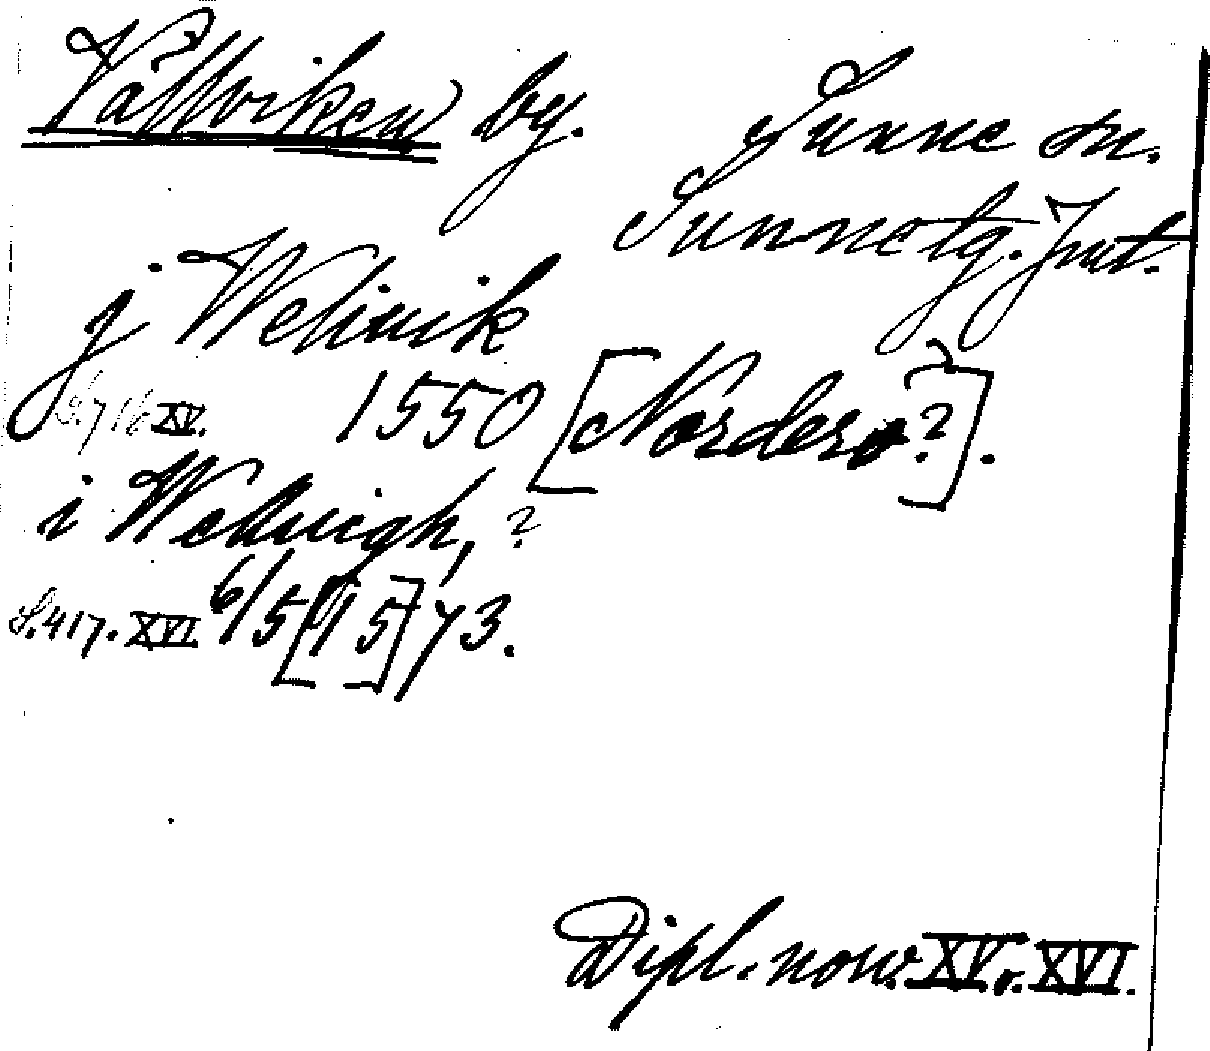 Vällviken by. Sunne sn.
Sunne tg. Jmt.
j Welwik
S. 716 XV. 1550 [Norderö?].
i Welluigh, ?
S. 417. XVI. 6/5 [15]73.
Dipl. norv. XV o. XVI.